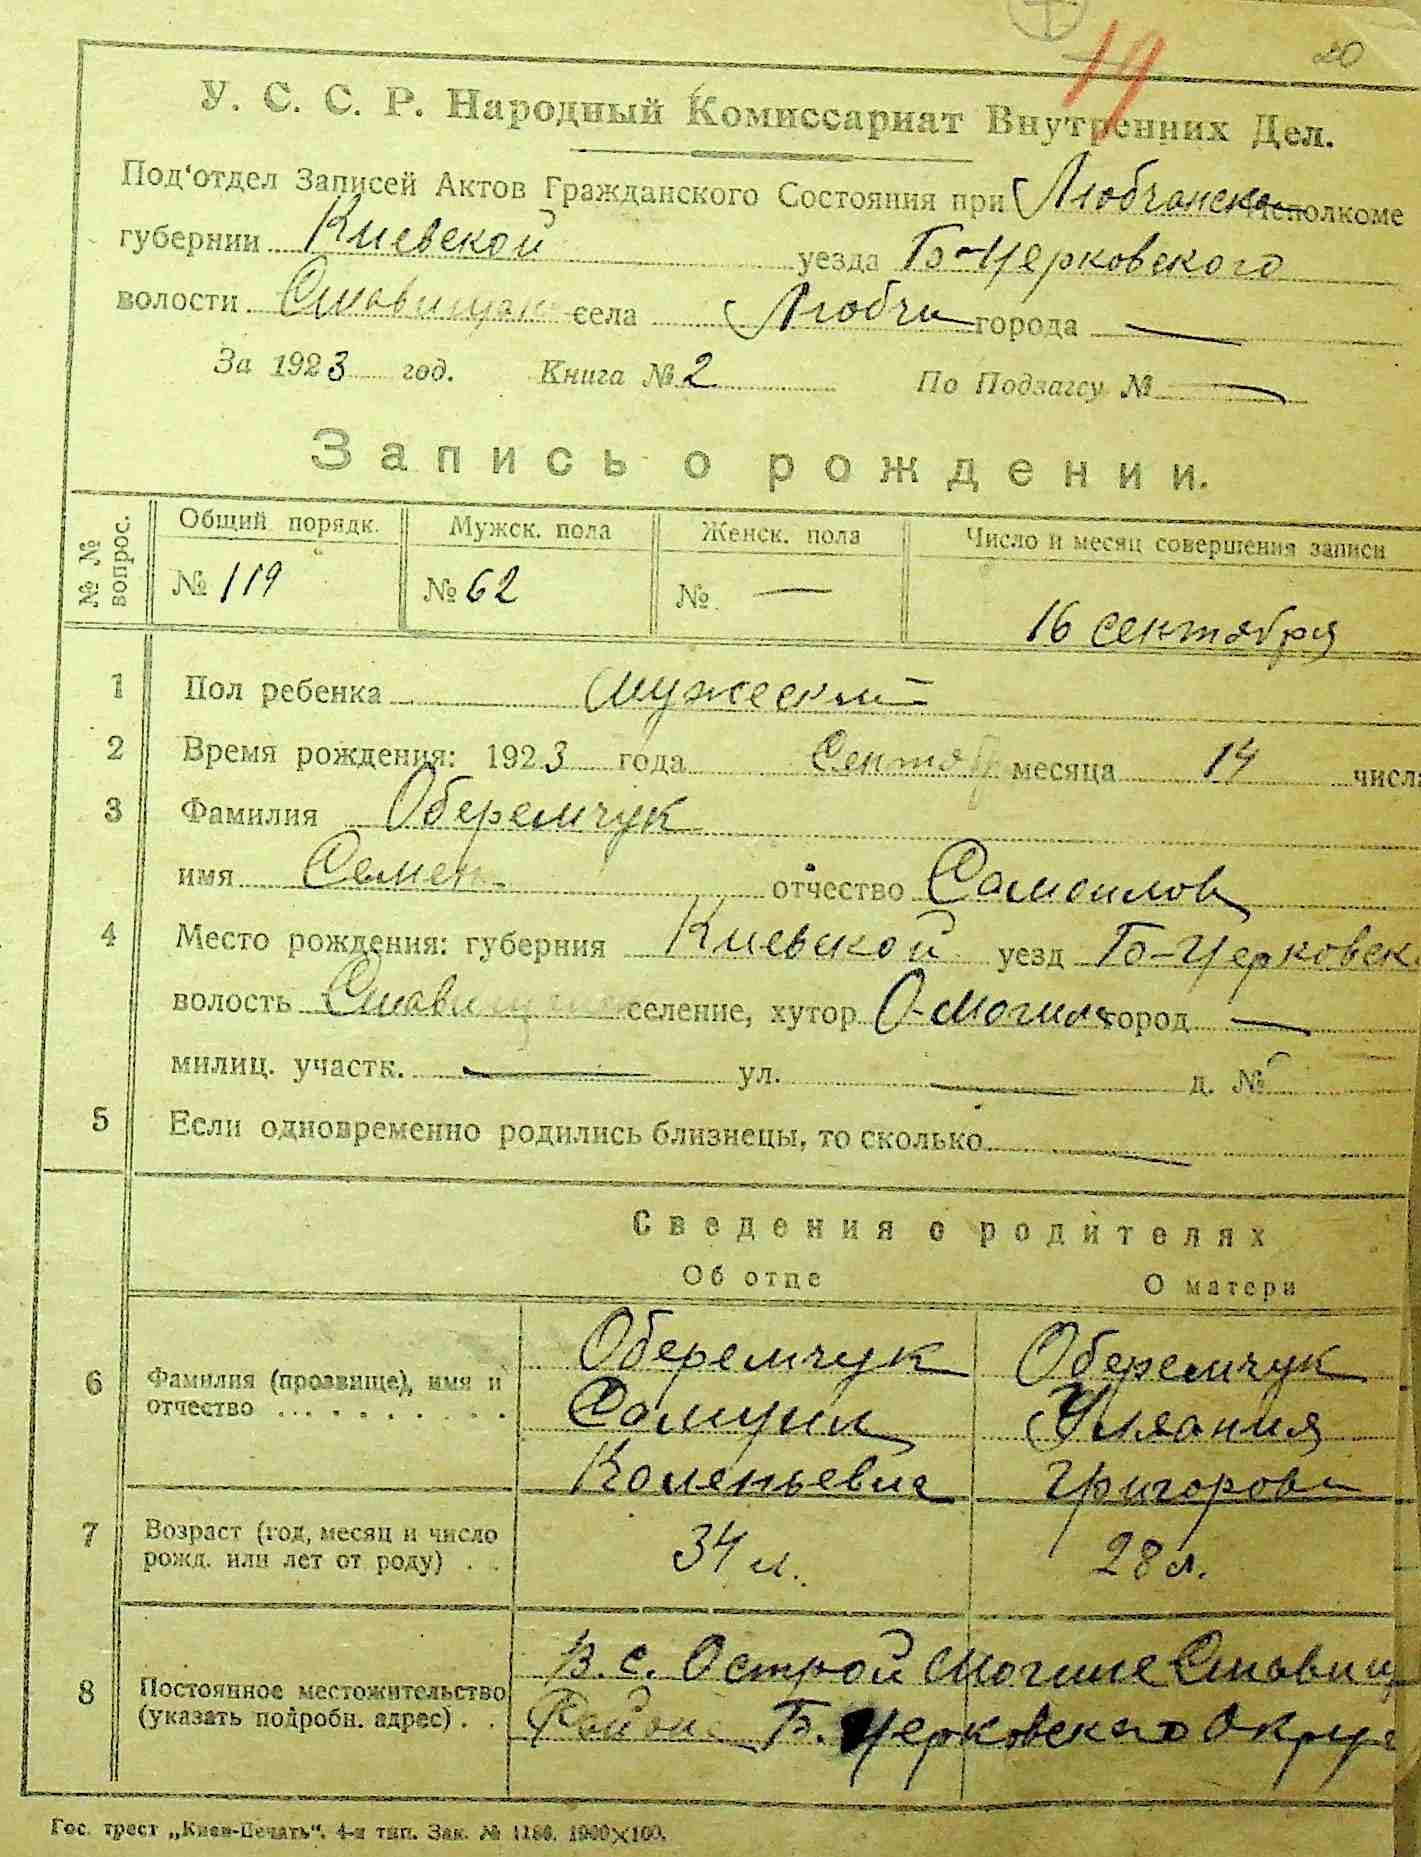 19 20
У. С. С. Р. Народный Комиссариат Внутренних Дел.
Под‘отдел Записей Актов Гражданского Состояния при Любчанско Исполкоме
губернии Киевской уезда Б-Церковского
волости Ставищан села Любчи города —
За 1923 год. Книга № 2 По Подзагсу № —
Запись о рождении.
№ № вопрос.
Общий порядк. Мужск. пола Женск. пола Число и месяц совершения записи
№ 119 № 62 № — 16 сентября
1 Пол ребенка мужеский
2 Время рождения: 1923 года Сентябр месяца 14 числа
3 Фамилия Оберемчук
имя Семен отчество Самоилов
4 Место рождения: губерния Киевской уезд Б-Церковск
волость Ставищан селение, хутор О-Могила город —
милиц. участк. — ул. — д. №
5 Если одновременно родились близнецы, то сколько —
Сведения о родителях
Об отце О матери
6 Фамилия (прозвище), имя и отчество Оберемчук Оберемчук
Самуил Уляния
Григоров
7 Возраст (год, месяц и число рожд. или лет от роду) 34 л. 28 л.
8 Постоянное местожительство (указать подробн. адрес) В. с. Острой Могиле Ставищ
Района Б. Церковского Округ
Гос. трест „Киев-Печать“. 4-я тип. Зак. № 1186. 1900×100.